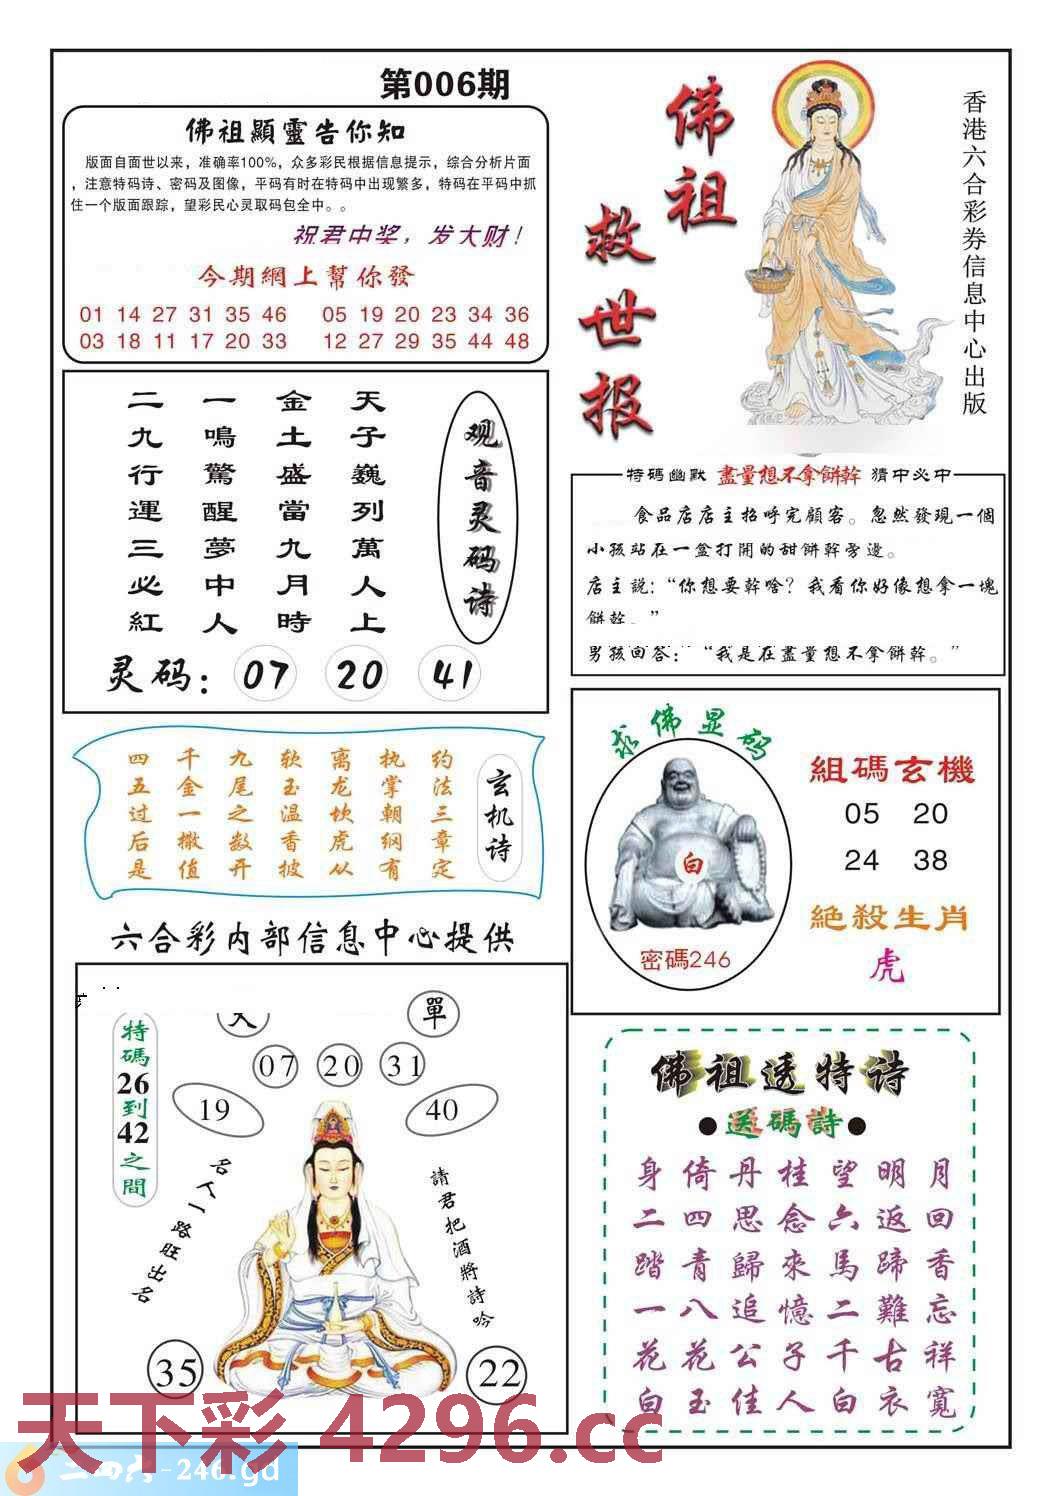 第006期
佛祖顯靈告你知
版面自面世以来，准确率100%，众多彩民根据信息提示，综合分析片面
，注意特码诗、密码及图像，平码有时在特码中出现繁多，特码在平码中抓
住一个版面跟踪，望彩民心灵取码包全中。。
祝君中奖，发大财！
今期網上幫你發
01 14 27 31 35 46
05 19 20 23 34 36
03 18 11 17 20 33
12 27 29 35 44 48
佛祖
救世报
香港六合彩券信息中心出版
观音灵码诗
天子巍列萬人上
金土盛當九月時
一鳴驚醒夢中人
二九行運三必紅
灵码：07 20 41
特碼幽默 盡量想不拿餅幹 猜中必中
食品店店主招呼完顧客。忽然發現一個
小孩站在一盆打開的甜餅幹旁邊。
店主説：“你想要幹啥？我看你好像想拿一塊
餅幹。”
男孩回答：“我是在盡量想不拿餅幹。”
玄机诗
约法三章定
执掌朝纲有
离龙坎虎从
软玉温香披
九尾之数开
千金一撒值
四五过后是
求佛显码
白
密碼246
組碼玄機
05 20
24 38
絶殺生肖
虎
六合彩内部信息中心提供
特碼26到42之間
單
07 20 31
19
40
名人一路旺出名
請君把酒將詩吟
35
22
佛祖透特诗
●送碼詩●
身倚丹桂望明月
二四思念六返回
踏青歸來馬蹄香
一八追憶二難忘
花花公子千古祥
白玉佳人白衣寬
天下彩 4296.cc
二四六-246.gd